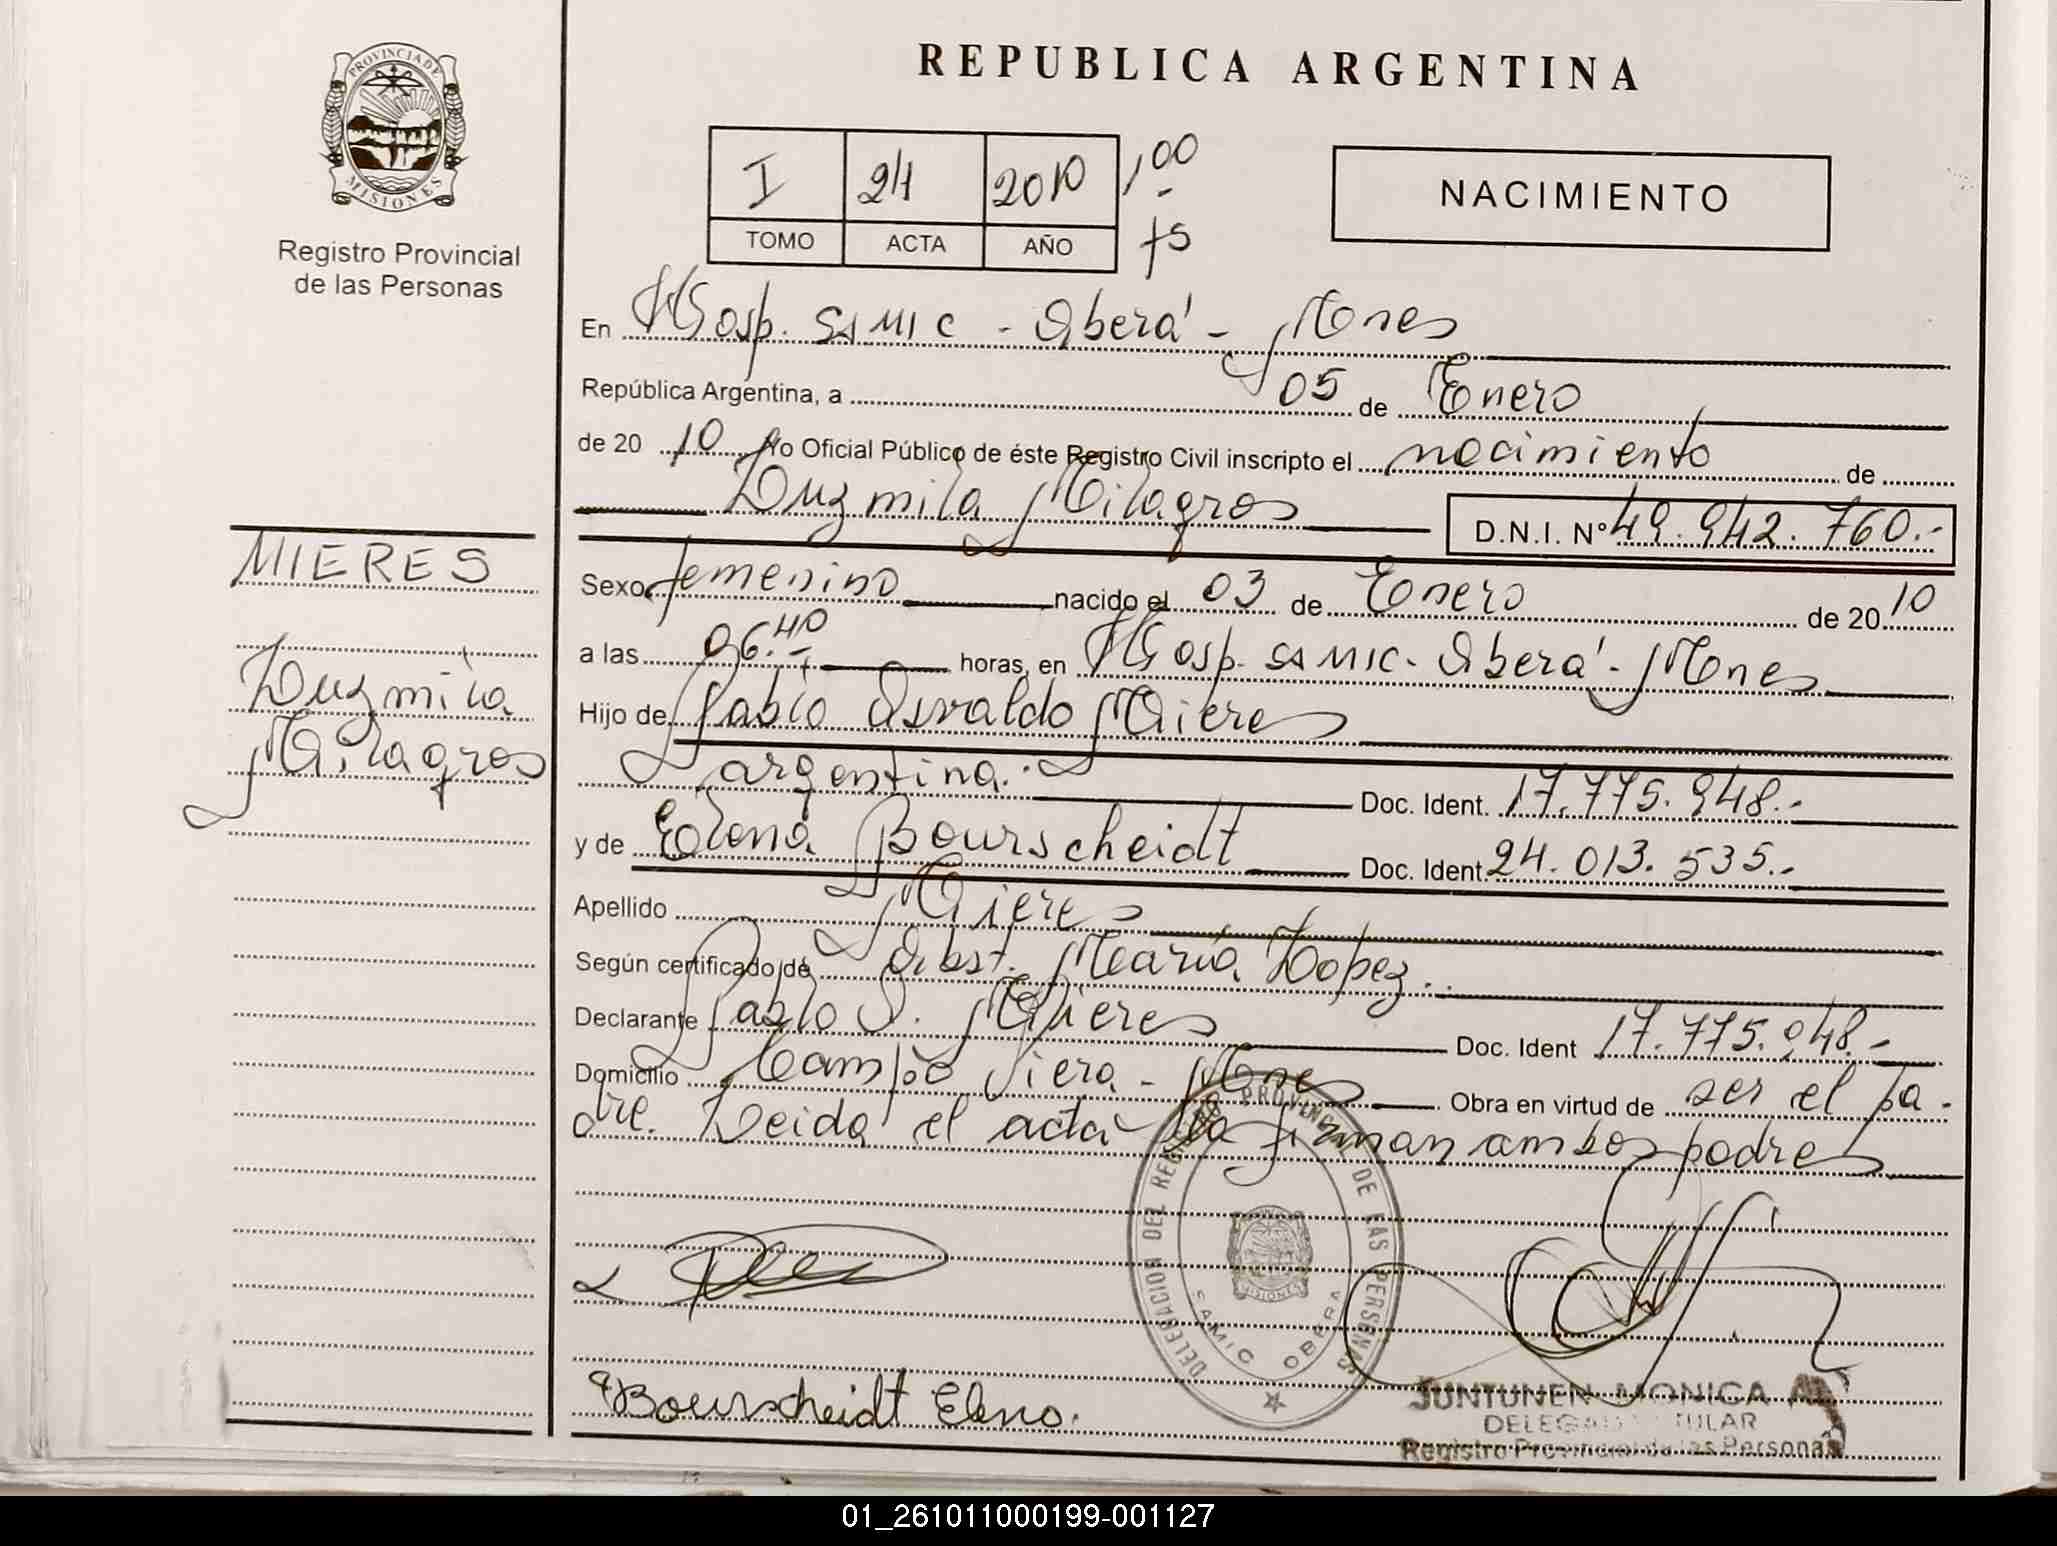 PROVINCIA DE
MISIONES
Registro Provincial
de las Personas
REPUBLICA ARGENTINA
I 24 2010 ,00
TOMO ACTA AÑO fs
NACIMIENTO
En Hosp. SAMIC - Oberá - Mnes
República Argentina, a 05 de Enero
de 20 10 Yo Oficial Público de éste Registro Civil inscripto el nacimiento de
Luzmila Milagros D.N.I. Nº 49.942.760.-
MIERES
Luzmila
Milagros
Sexo femenino nacido el 03 de Enero de 20 10
a las 06.40 horas, en Hosp. SAMIC - Oberá - Mnes
Hijo de Pablo Osvaldo Mieres
argentina.- Doc. Ident. 17.775.948.-
y de Elena Bourscheidt Doc. Ident. 24.013.535.-
Apellido Mieres
Según certificado de Obst. María Lopez.
Declarante Pablo O. Mieres Doc. Ident 17.775.948.-
Domicilio Campo Viera - Mnes Obra en virtud de ser el pa-
dre. Leida el acta la firman ambos padres
DELEGACION DEL REGISTRO PROVINCIAL DE LAS PERSONAS
MISIONES
SAMIC OBERA
Bourscheidt Elena.
JUNTUNEN MONICA
DELEGADA TITULAR
Registro Provincial de las Personas
01_261011000199-001127